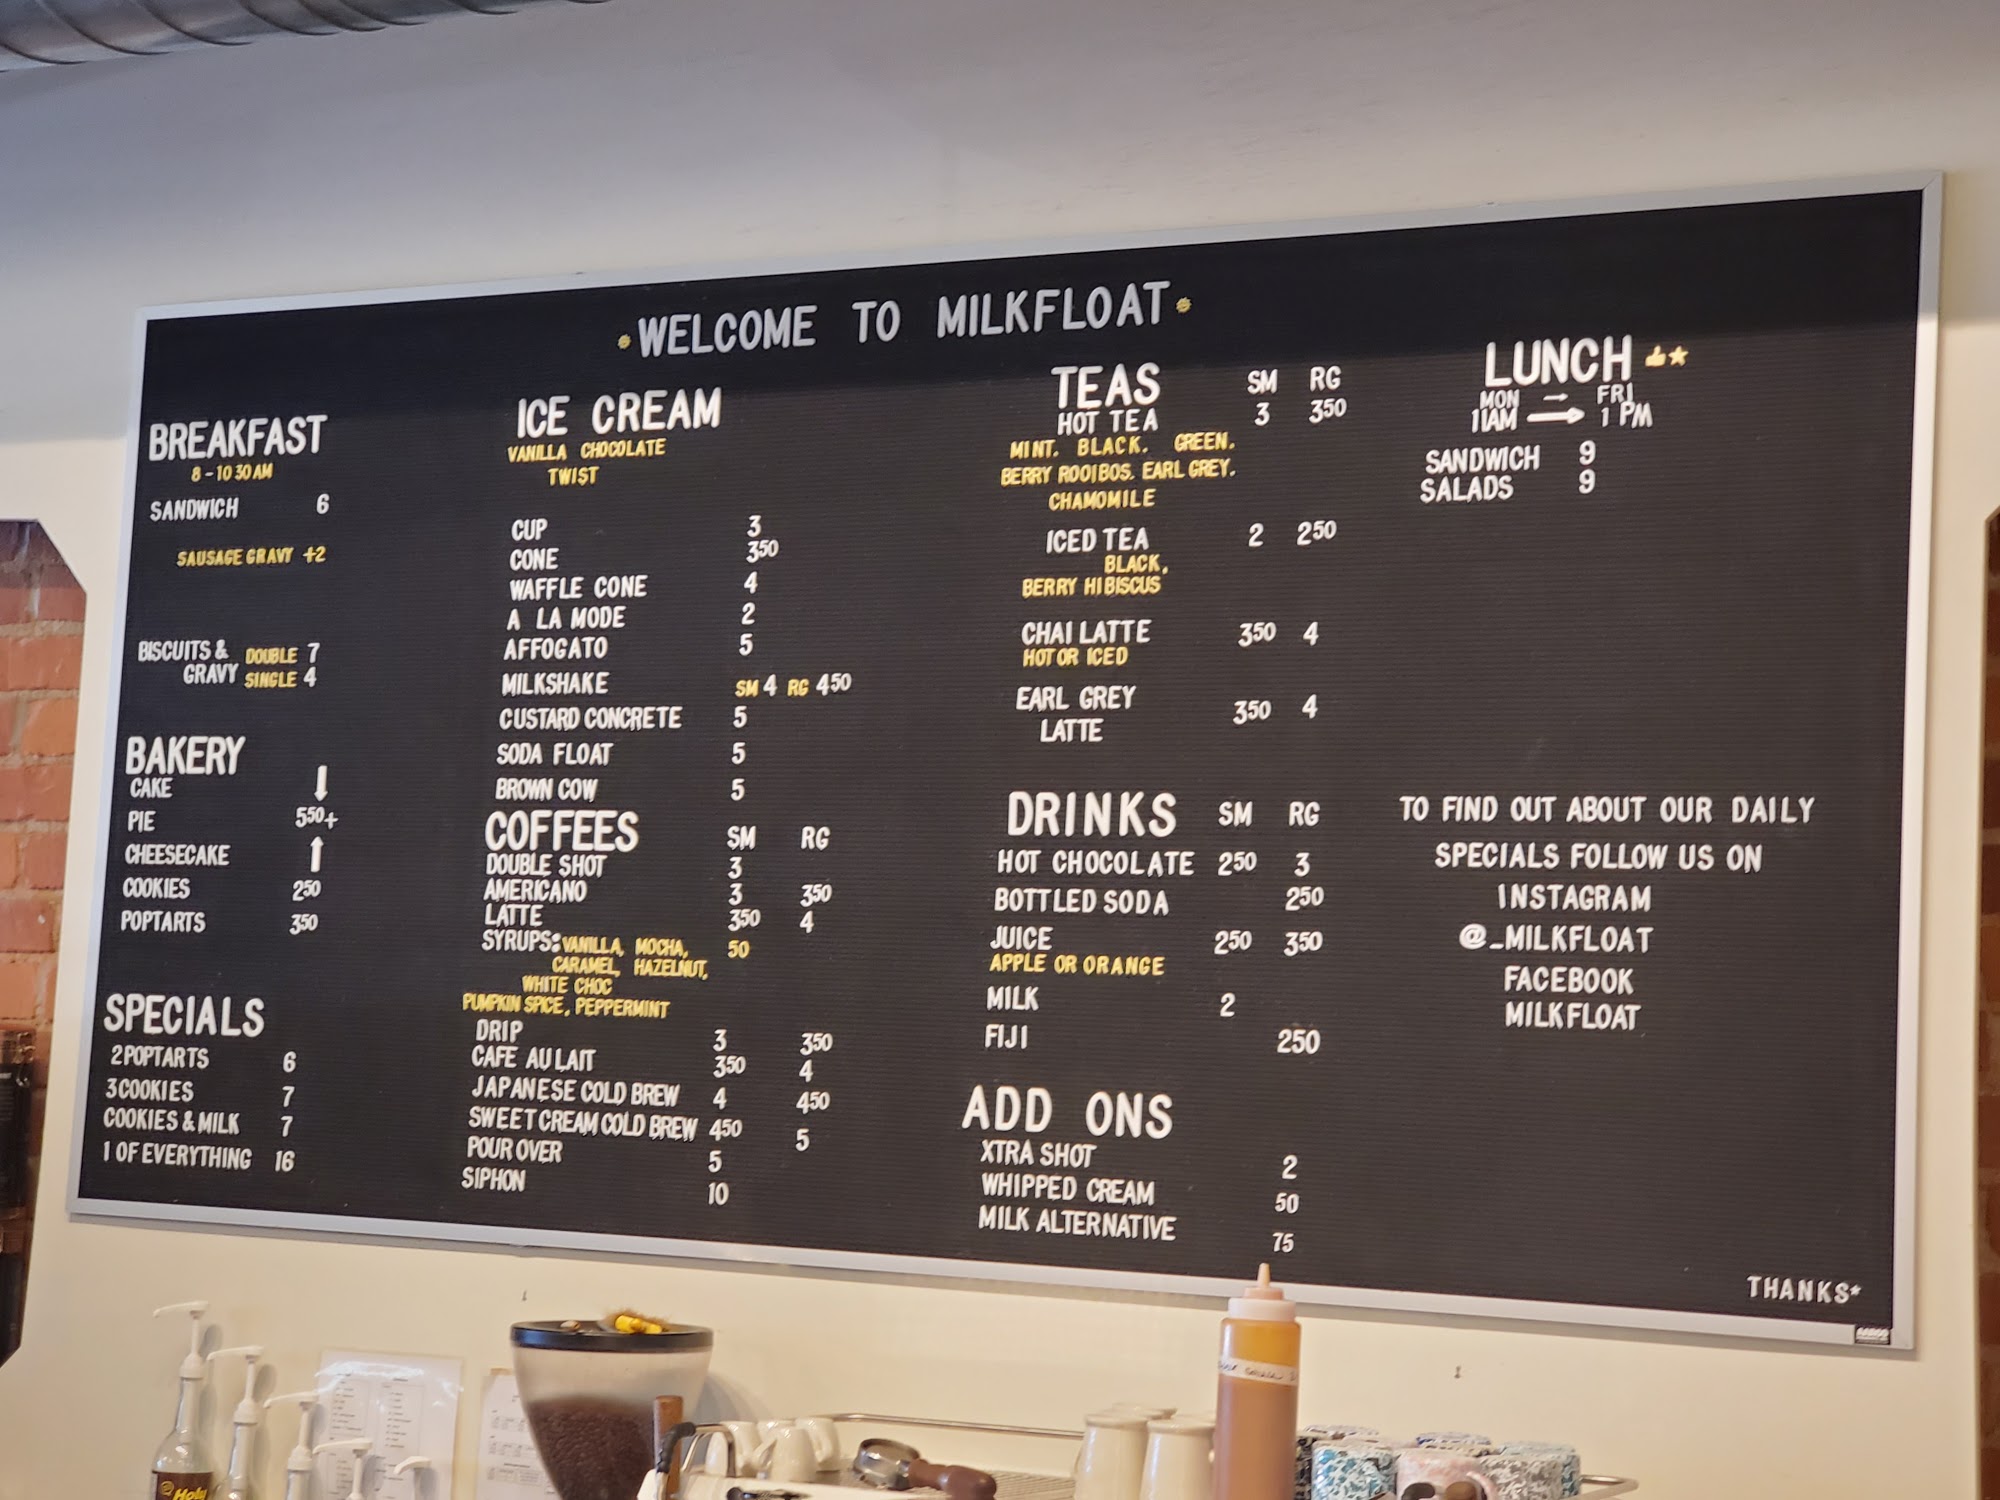 WELCOME TO MILKFLOAT
BREAKFAST
8-10 30 AM
SANDWICH 6
SAUSAGE GRAVY +2
BISCUITS & GRAVY
DOUBLE 7
SINGLE 4
BAKERY
CAKE
PIE 550+
CHEESECAKE
COOKIES 250
POPTARTS 350
SPECIALS
2 POPTARTS 6
3 COOKIES 7
COOKIES & MILK 7
1 OF EVERYTHING 16
ICE CREAM
VANILLA CHOCOLATE
TWIST
CUP 3
CONE 350
WAFFLE CONE 4
A LA MODE 2
AFFOGATO 5
MILKSHAKE SM 4 RG 450
CUSTARD CONCRETE 5
SODA FLOAT 5
BROWN COW 5
COFFEES SM RG
DOUBLE SHOT 3
AMERICANO 3 350
LATTE 350 4
SYRUPS: VANILLA, MOCHA, 50
CARAMEL, HAZELNUT,
WHITE CHOC
PUMPKIN SPICE, PEPPERMINT
DRIP 3 350
CAFE AU LAIT 350 4
JAPANESE COLD BREW 4 450
SWEET CREAM COLD BREW 450 5
POUR OVER 5
SIPHON 10
TEAS SM RG
HOT TEA 3 350
MINT. BLACK. GREEN.
BERRY ROOIBOS. EARL GREY.
CHAMOMILE
ICED TEA 2 250
BLACK,
BERRY HIBISCUS
CHAI LATTE 350 4
HOT OR ICED
EARL GREY
LATTE 350 4
DRINKS SM RG
HOT CHOCOLATE 250 3
BOTTLED SODA 250
JUICE 250 350
APPLE OR ORANGE
MILK 2
FIJI 250
ADD ONS
XTRA SHOT 2
WHIPPED CREAM 50
MILK ALTERNATIVE 75
LUNCH
MON → FRI
11AM → 1 PM
SANDWICH 9
SALADS 9
TO FIND OUT ABOUT OUR DAILY
SPECIALS FOLLOW US ON
INSTAGRAM
@_MILKFLOAT
FACEBOOK
MILKFLOAT
THANKS*
Holy